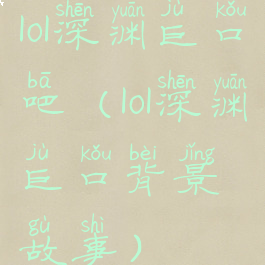 shēn yuān jù kǒu
lol深渊巨口
bā shēn yuān
吧（lol深渊
jù kǒu bèi jǐng
巨口背景
gù shi
故事）